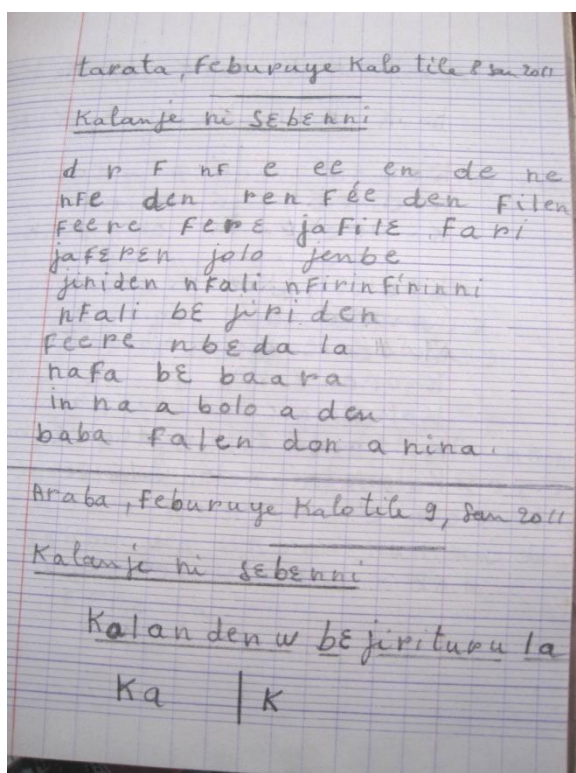 tarata, Feburuye Kalo tile 8 san 2011
Kalanje ni sɛbɛnni
d r F nF e ee en de ne
nFe den ren Fée den Filen
Feere Ferɛ jaFilɛ Fari
jaFɛrɛn jolo jenbe
jiriden nFali nFirinFininni
nFali bɛ jiri den
Feere nbɛda la
nafa bɛ baara
in na a bolo a den
baba Falen don a nina.
Araba, Feburuye Kalo tile 9, San 2011
Kalanje ni sɛbɛnni
Kalan den w bɛ jirituru la
Ka | K